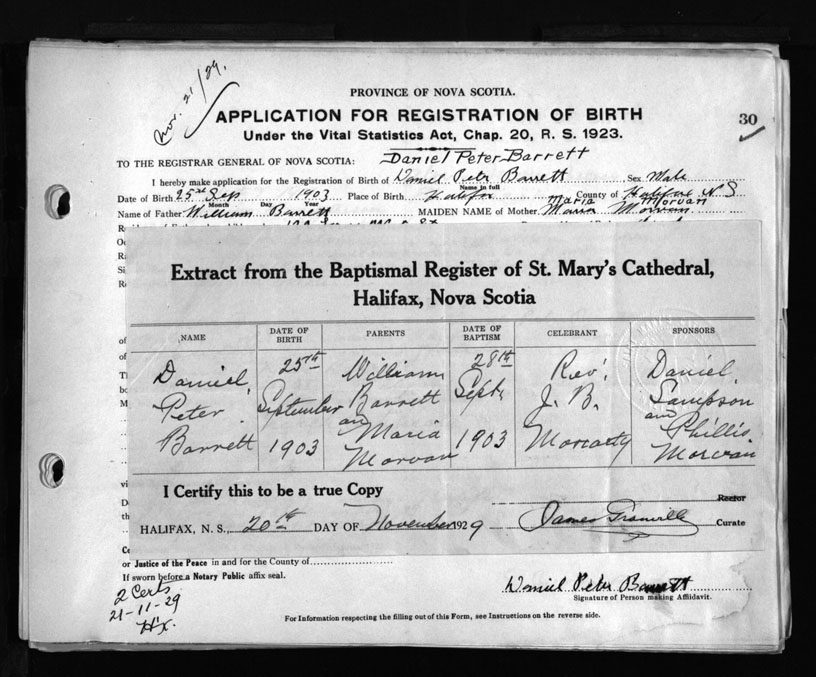 Nov. 21/29.
PROVINCE OF NOVA SCOTIA.
APPLICATION FOR REGISTRATION OF BIRTH
30
Under the Vital Statistics Act, Chap. 20, R. S. 1923.
TO THE REGISTRAR GENERAL OF NOVA SCOTIA: Daniel Peter Barrett
I hereby make application for the Registration of Birth of Daniel Peter Barrett Sex Male
Name in full
Date of Birth 25 Sep 1903 Place of Birth Halifax County of Halifax N S
Month Day Year
Maria Morvan
Name of Father William Barrett MAIDEN NAME of Mother Maria Morvan
Extract from the Baptismal Register of St. Mary's Cathedral,
Halifax, Nova Scotia
NAME DATE OF BIRTH PARENTS DATE OF BAPTISM CELEBRANT SPONSORS
Daniel, 25th William 28th Rev. Daniel
Peter September Barrett Sept. J. B. Sampson
and and
Barrett 1903 Maria 1903 Moriarty Phillis
Morvan Morvan
I Certify this to be a true Copy
Rector
HALIFAX, N. S., 20th DAY OF November 1929 James Granville Curate
or Justice of the Peace in and for the County of
If sworn before a Notary Public affix seal.
2 Certs
21-11-29
Hx.
Daniel Peter Barrett
Signature of Person making Affidavit.
For Information respecting the filling out of this Form, see Instructions on the reverse side.